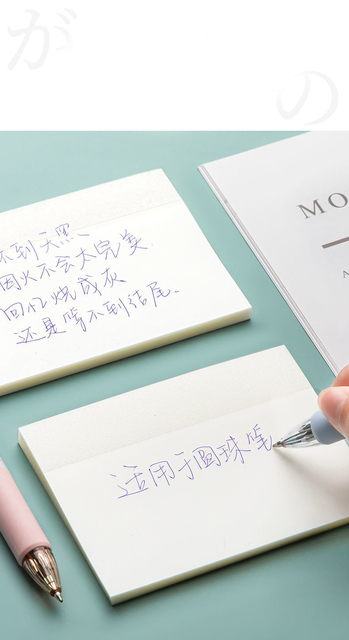 が
の
不到天黑
因火不会太完美
回忆烧成灰
还是等不到结尾.
MO
A
适用于圆珠笔